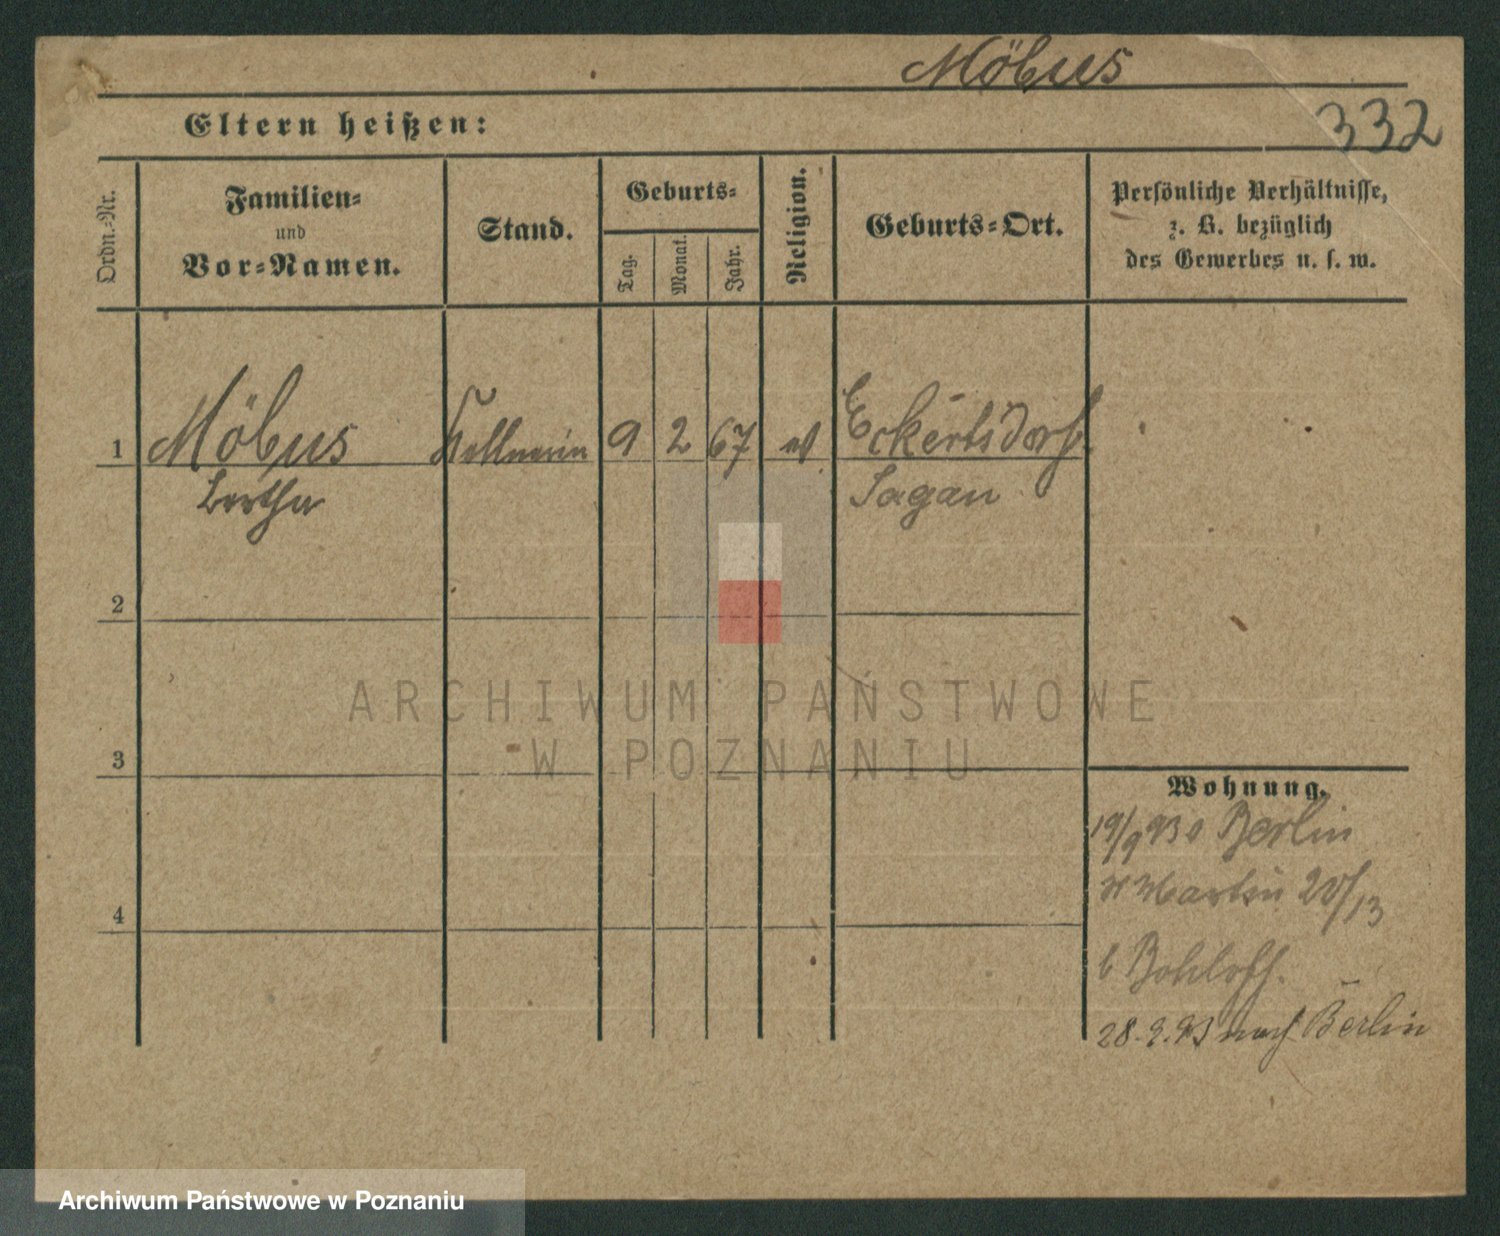 Möbus
332
Eltern heißen:
Ordn.-Nr.
Familien-
und
Vor-Namen.
Stand.
Geburts-
Tag.
Monat.
Jahr.
Religion.
Geburts-Ort.
Persönliche Verhältnisse,
z. B. bezüglich
des Gewerbes u. s. w.
1 Möbus Kellnerin 9 2 67 ev Eckertsdorf
Bertha Sagan
2
3
4
ARCHIWUM PAŃSTWOWE
W POZNANIU
Wohnung.
19/9 93 Berlin
Martin 20/13
b
28.9.93 nach Berlin
Archiwum Państwowe w Poznaniu